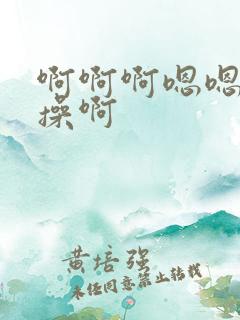 啊啊啊嗯嗯
操啊
黄培强
未经同意禁止转载